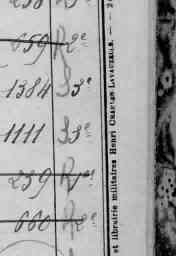 659 R 2e
1384 S 3e
1111 S 3e
239 R 1e
660 R 2e
et librairie militaires Henri CHARLES-LAVAUZELLE. — 2